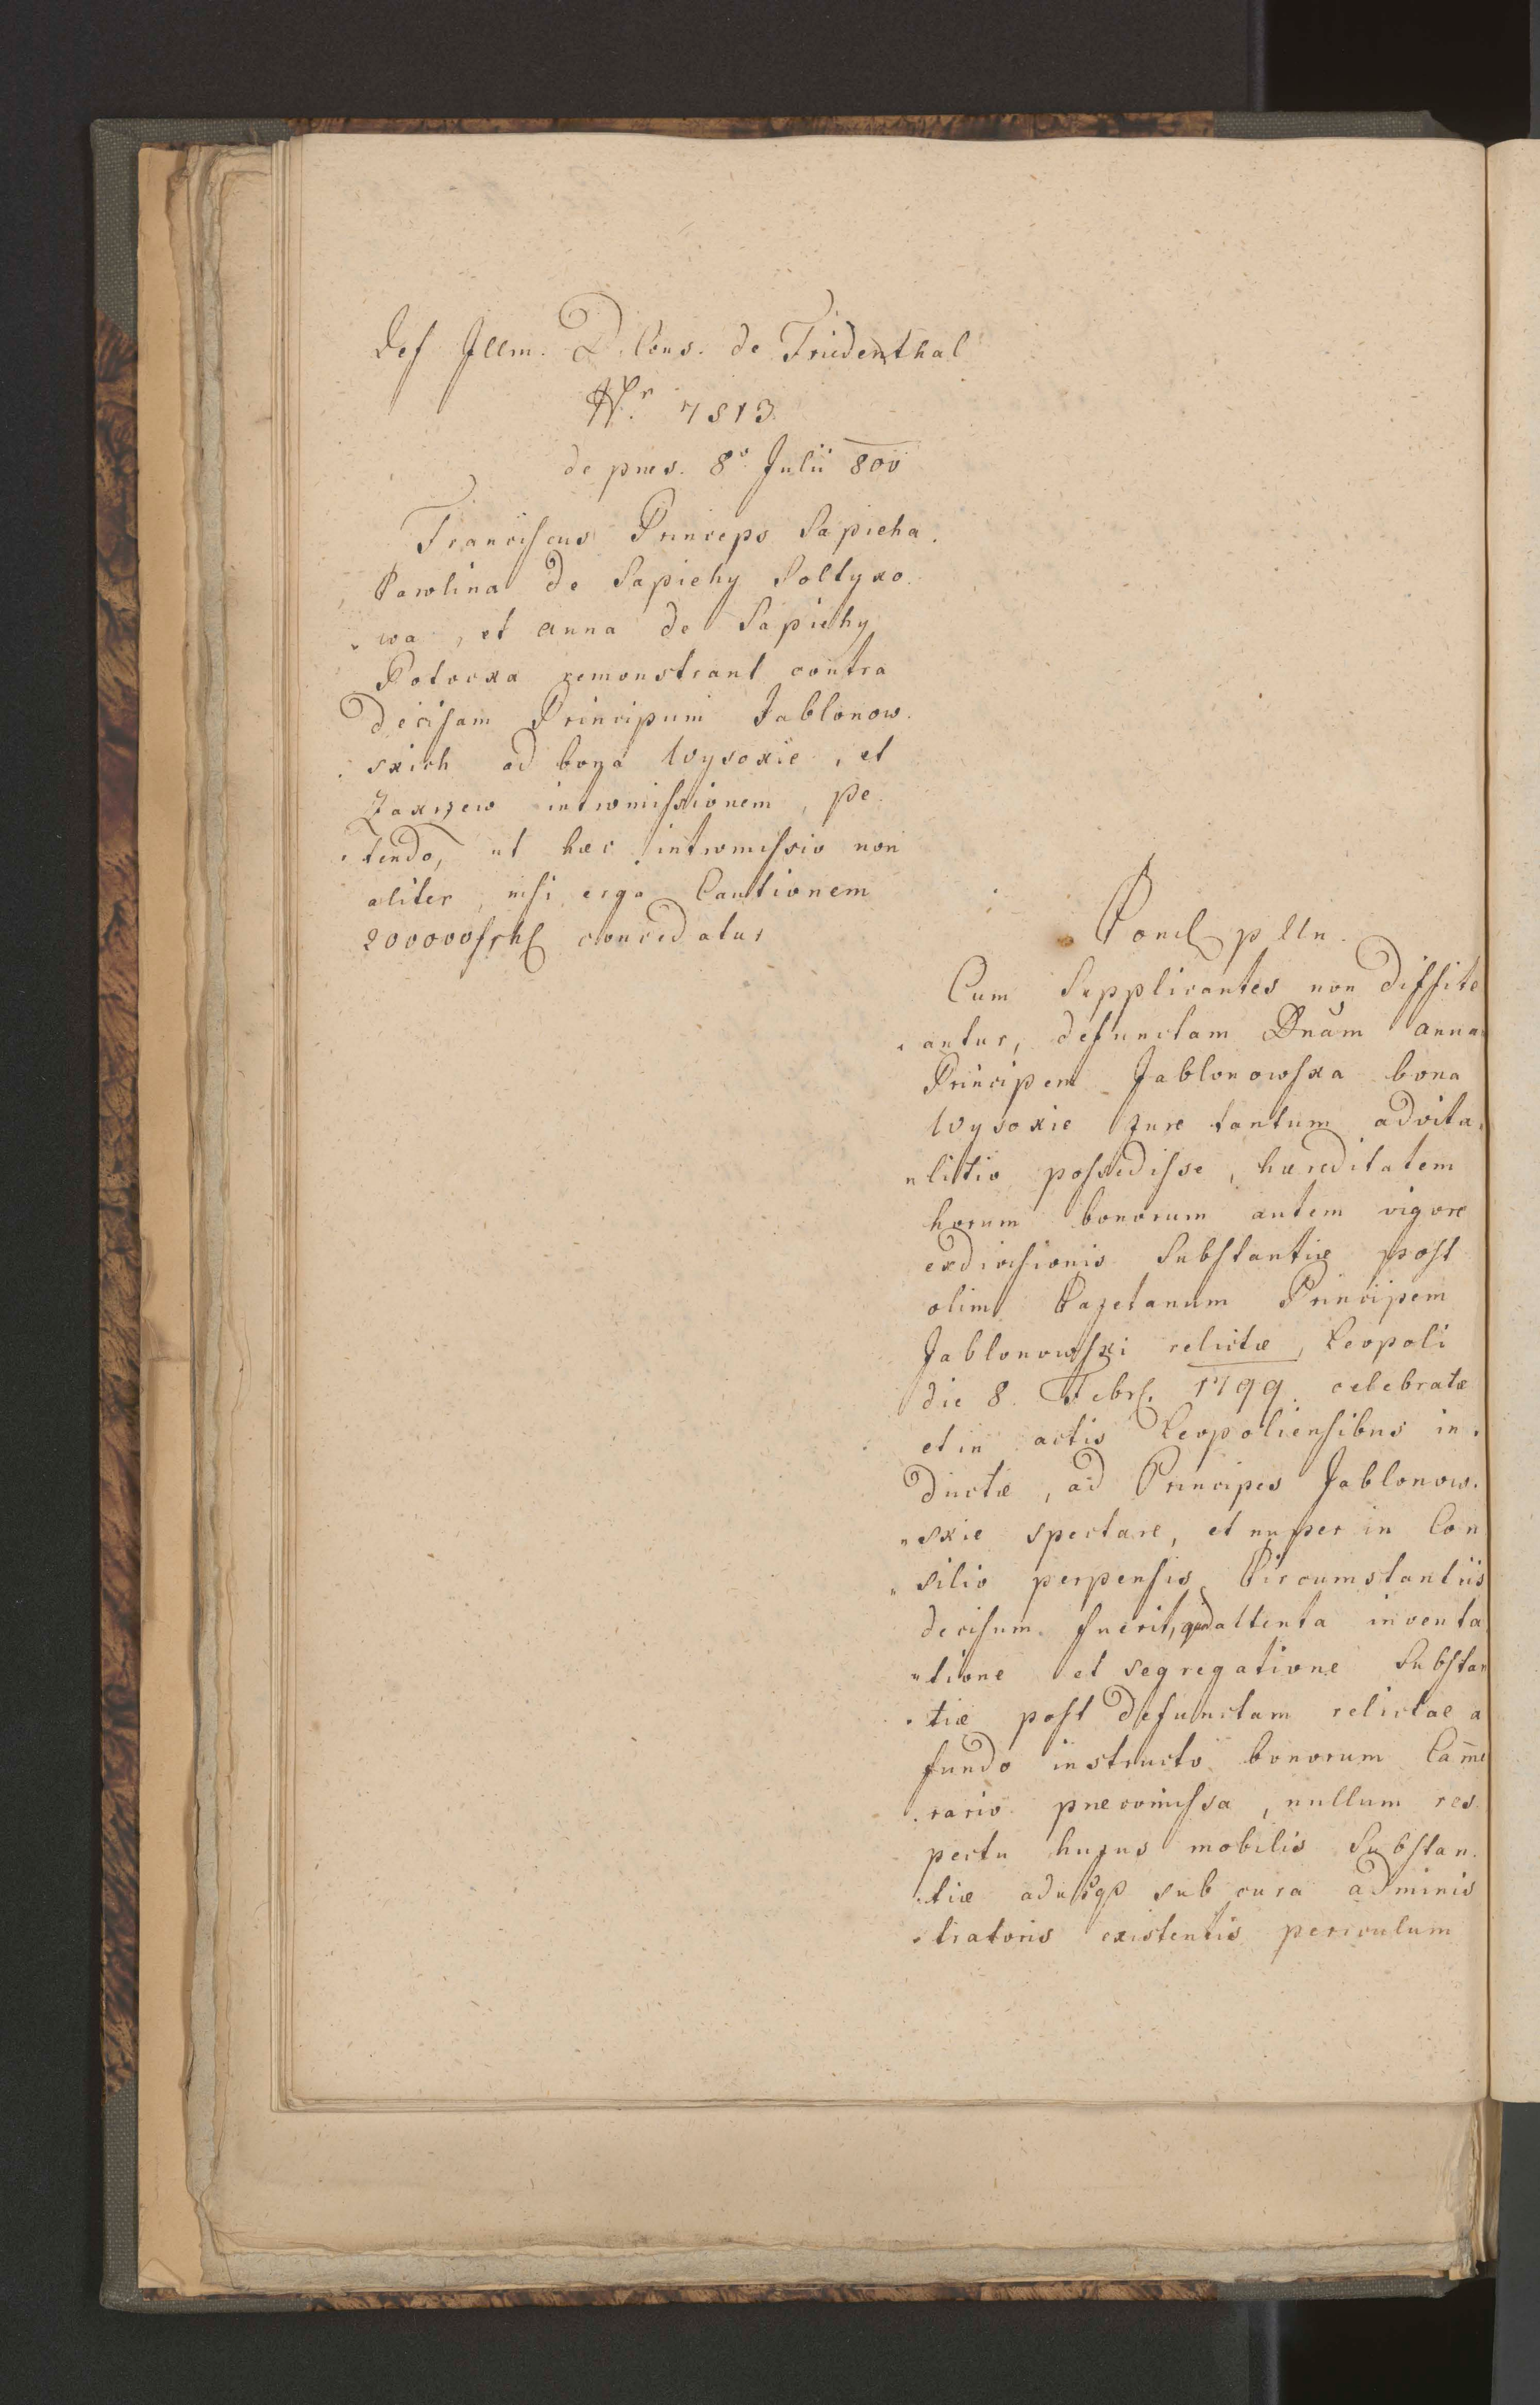 Ref Illm. D. Cons. de Friedenthal
Nr. 7813
de pnes. 8a Julii 800
Franciscus Princeps Sapieha.
Pawlina de Sapiehy Soltyko
wa, et Anna de Sapiehy
Potocka remonstrant contra
decisam Principum Jablonow.
skich ad bona Wysokie, et
Zakrzew intromissionem, pe
tendo, ut haec intromissio non
aliter, nisi erga Cautionem
200000 frh concedatur
Concl. p lln.
Cum Supplicantes non diffite
antur, defunctam Dnam Anna
Principem Jablonowska bona
Wysokie jure tantum advita
litio possedisse, haereditatem
horum bonorum autem vigore
exdivisionis Substantiae post
olim Cajetanum Principem
Jablonowski relictae, Leopoli
die 8. Febr. 1799. celebratae
et in actis Leopoliensibus in
ductae, ad Principes Jablonow.
skie spectare, et nuper in Con
silio perpensis Circumstantiis
decisum fuerit, quod attenta inventa
tione et segregatione Substan
tiae post defunctam relictae a
fundo instructo bonorum Came
rario praecomissa, nullum res
pectu hujus mobilis Substan.
tiae adusq sub cura adminis
tratoris existentis periculum